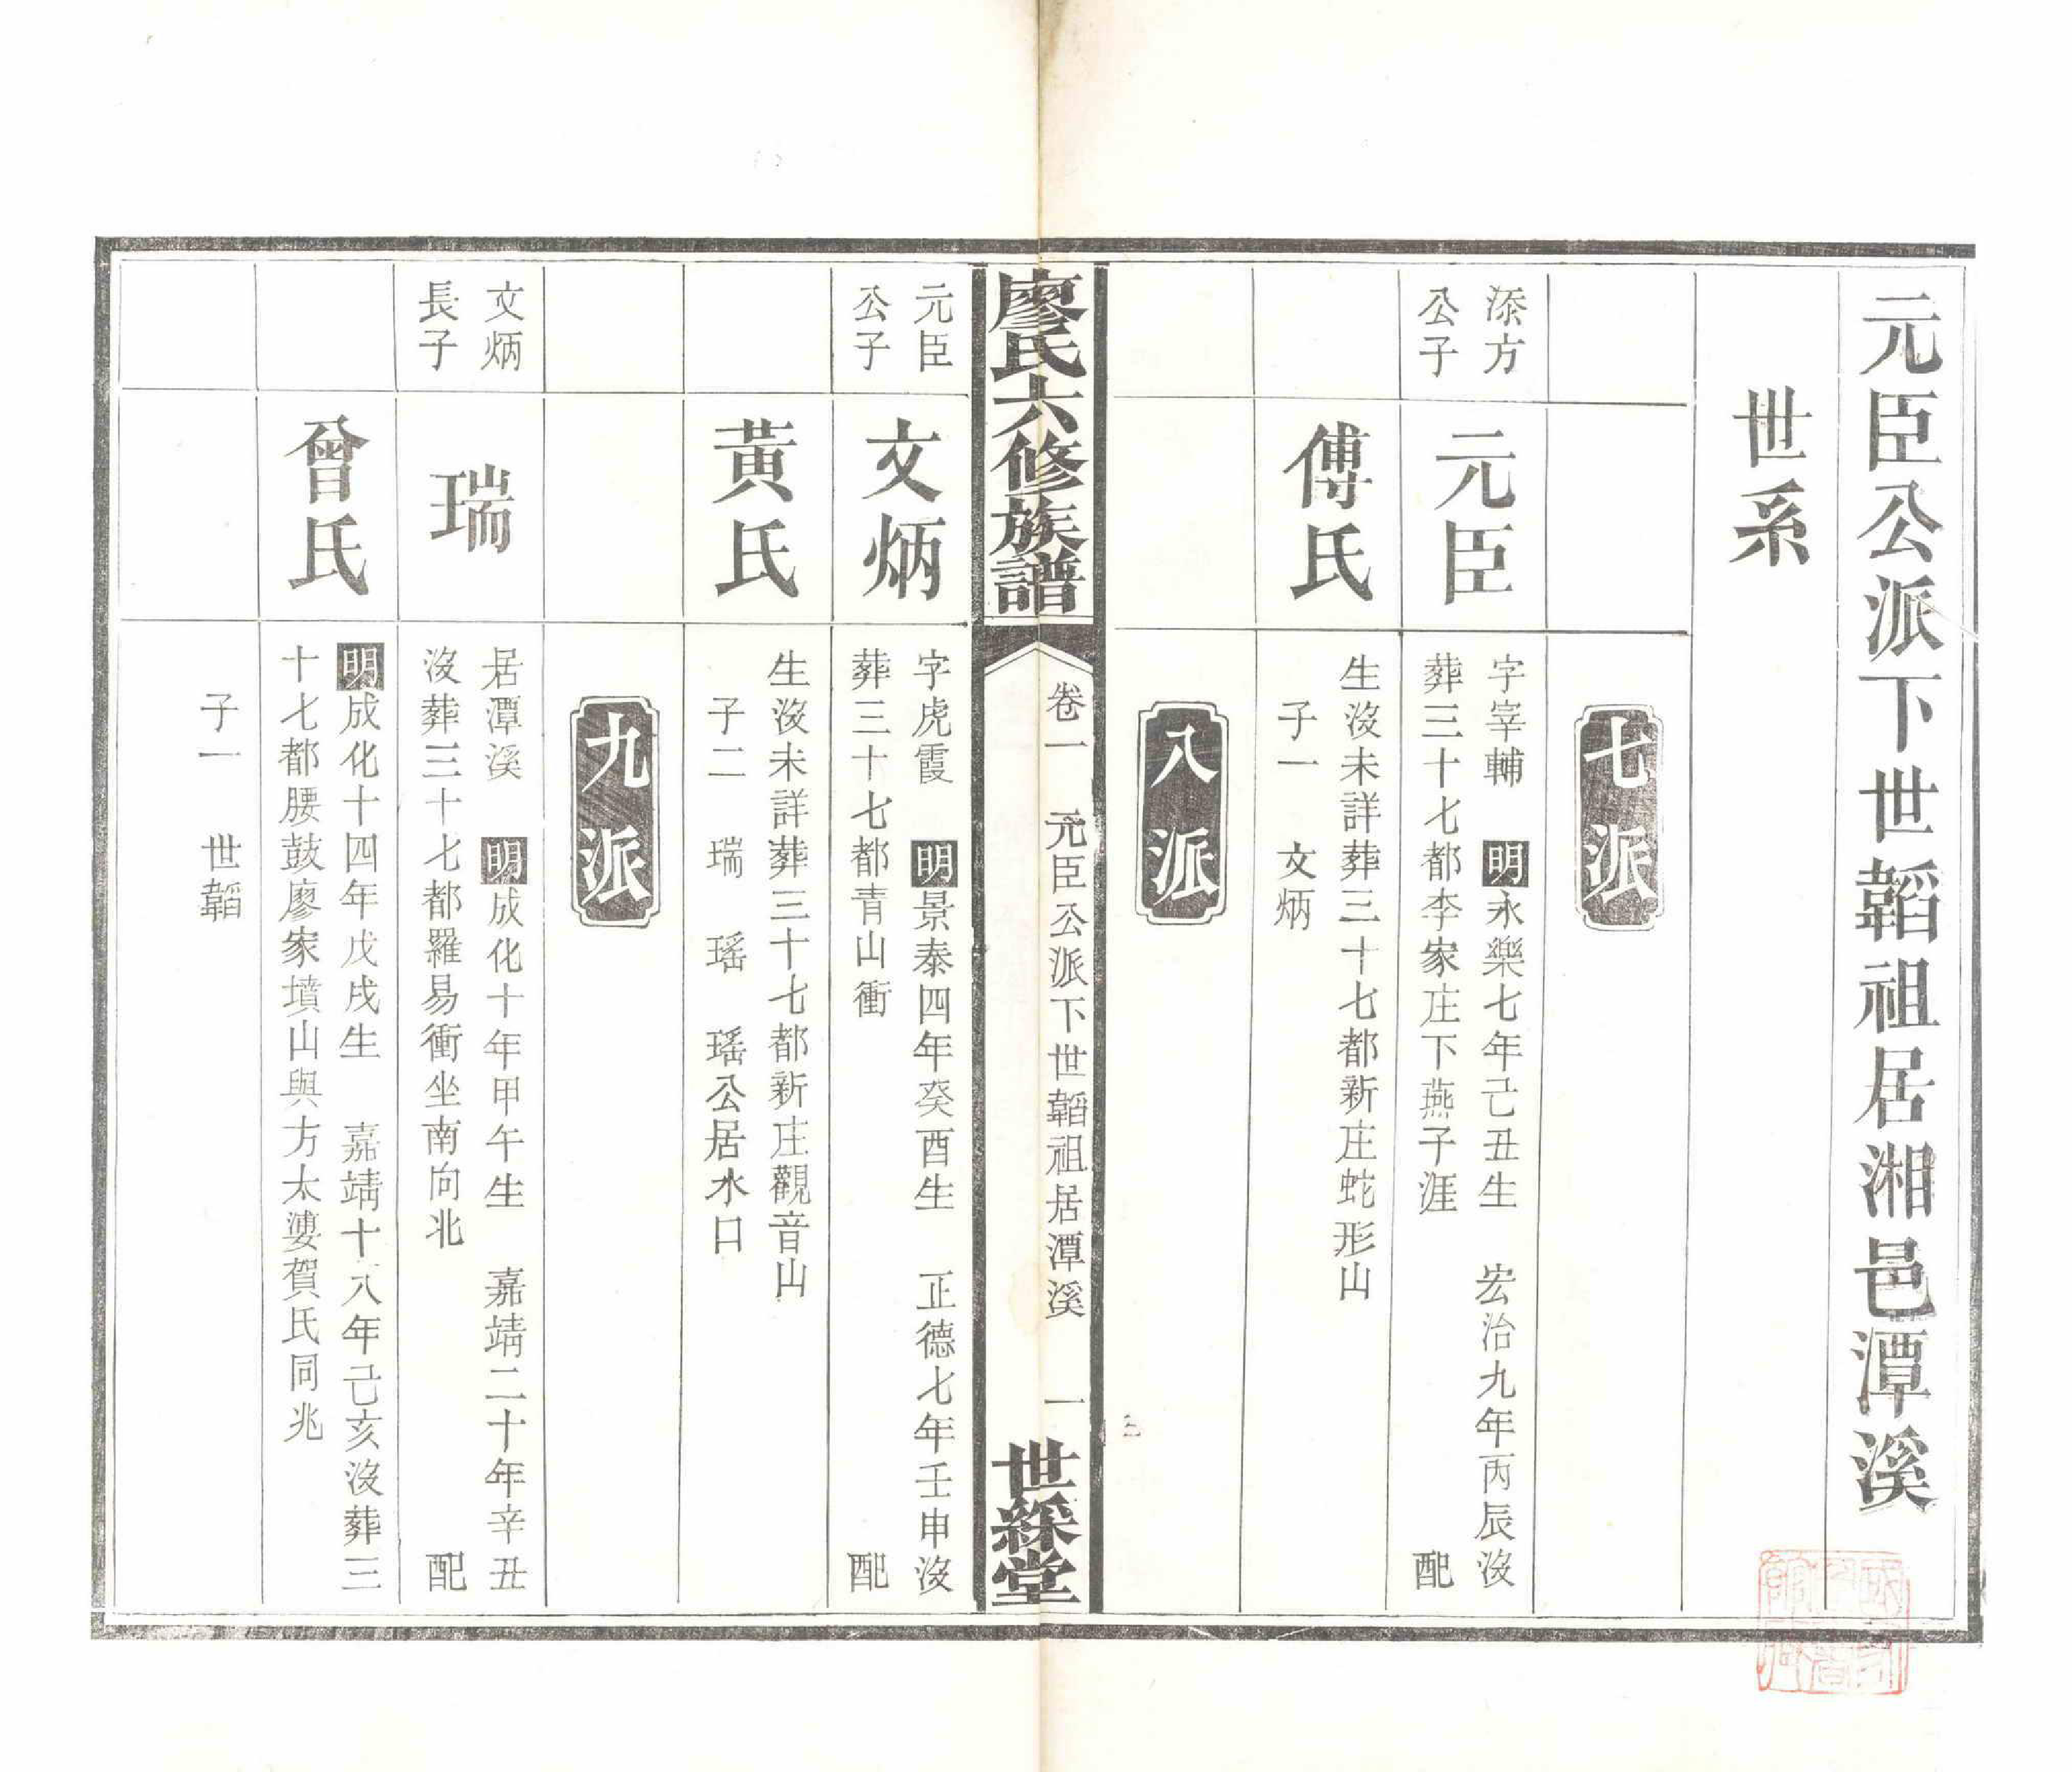 元臣公派下世韜祖居湘邑潭溪
世系
七派
添方
公子
元臣
字宰輔　明永樂七年己丑生　宏治九年丙辰沒
葬三十七都李家庄下燕子涯　配
傅氏
生沒未詳葬三十七都新庄蛇形山
子一　文炳
八派
廖氏六修族譜
卷一　元臣公派下世韜祖居潭溪　一
世綵堂
元臣
公子
文炳
字虎霞　明景泰四年癸酉生　正德七年壬申沒
葬三十七都青山衝　配
黃氏
生沒未詳葬三十七都新庄觀音山
子二　瑞　瑤　瑤公居水口
九派
文炳
長子
瑞
居潭溪　明成化十年甲午生　嘉靖二十年辛丑
沒葬三十七都羅易衝坐南向北　配
曾氏
明成化十四年戊戌生　嘉靖十八年己亥沒葬三
十七都腰鼓廖家墳山與方太婆賀氏同兆
子一　世韜